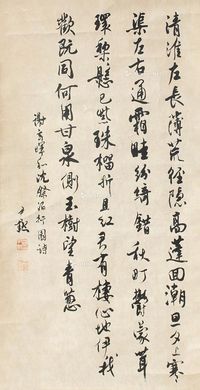 清淮左長薄荒徑隱高蓬回潮旦夕上寒
渠左右通霜畦紛綺錯秋町鬱蒙茸
環棃懸已紫珠榴折且紅君有棲心地伊我
歡既同何用甘泉側玉樹望青蔥
謝玄暉和沈祭酒行園詩
尹默